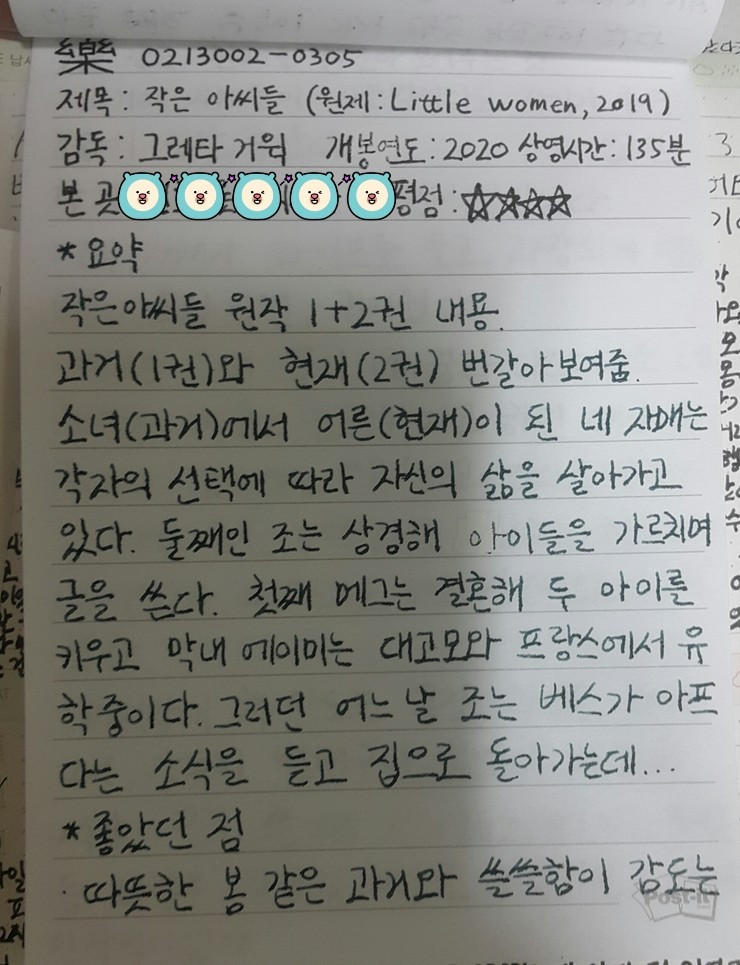 樂 0213002-0305
제목: 작은 아씨들 (원제: Little women, 2019)
감독: 그레타 거윅 개봉연도: 2020 상영시간: 135분
본 곳 평점: ☆☆☆☆
* 요약
작은아씨들 원작 1+2권 내용.
과거(1권)와 현재(2권) 번갈아보여줌.
소녀(과거)에서 어른(현재)이 된 네 자매는
각자의 선택에 따라 자신의 삶을 살아가고
있다. 둘째인 조는 상경해 아이들을 가르치며
글을 쓴다. 첫째 메그는 결혼해 두 아이를
키우고 막내 에이미는 대고모와 프랑스에서 유
학중이다. 그러던 어느 날 조는 베스가 아프
다는 소식을 듣고 집으로 돌아가는데...
* 좋았던 점
· 따뜻한 봄 같은 과거와 쓸쓸함이 감도는
Post-it